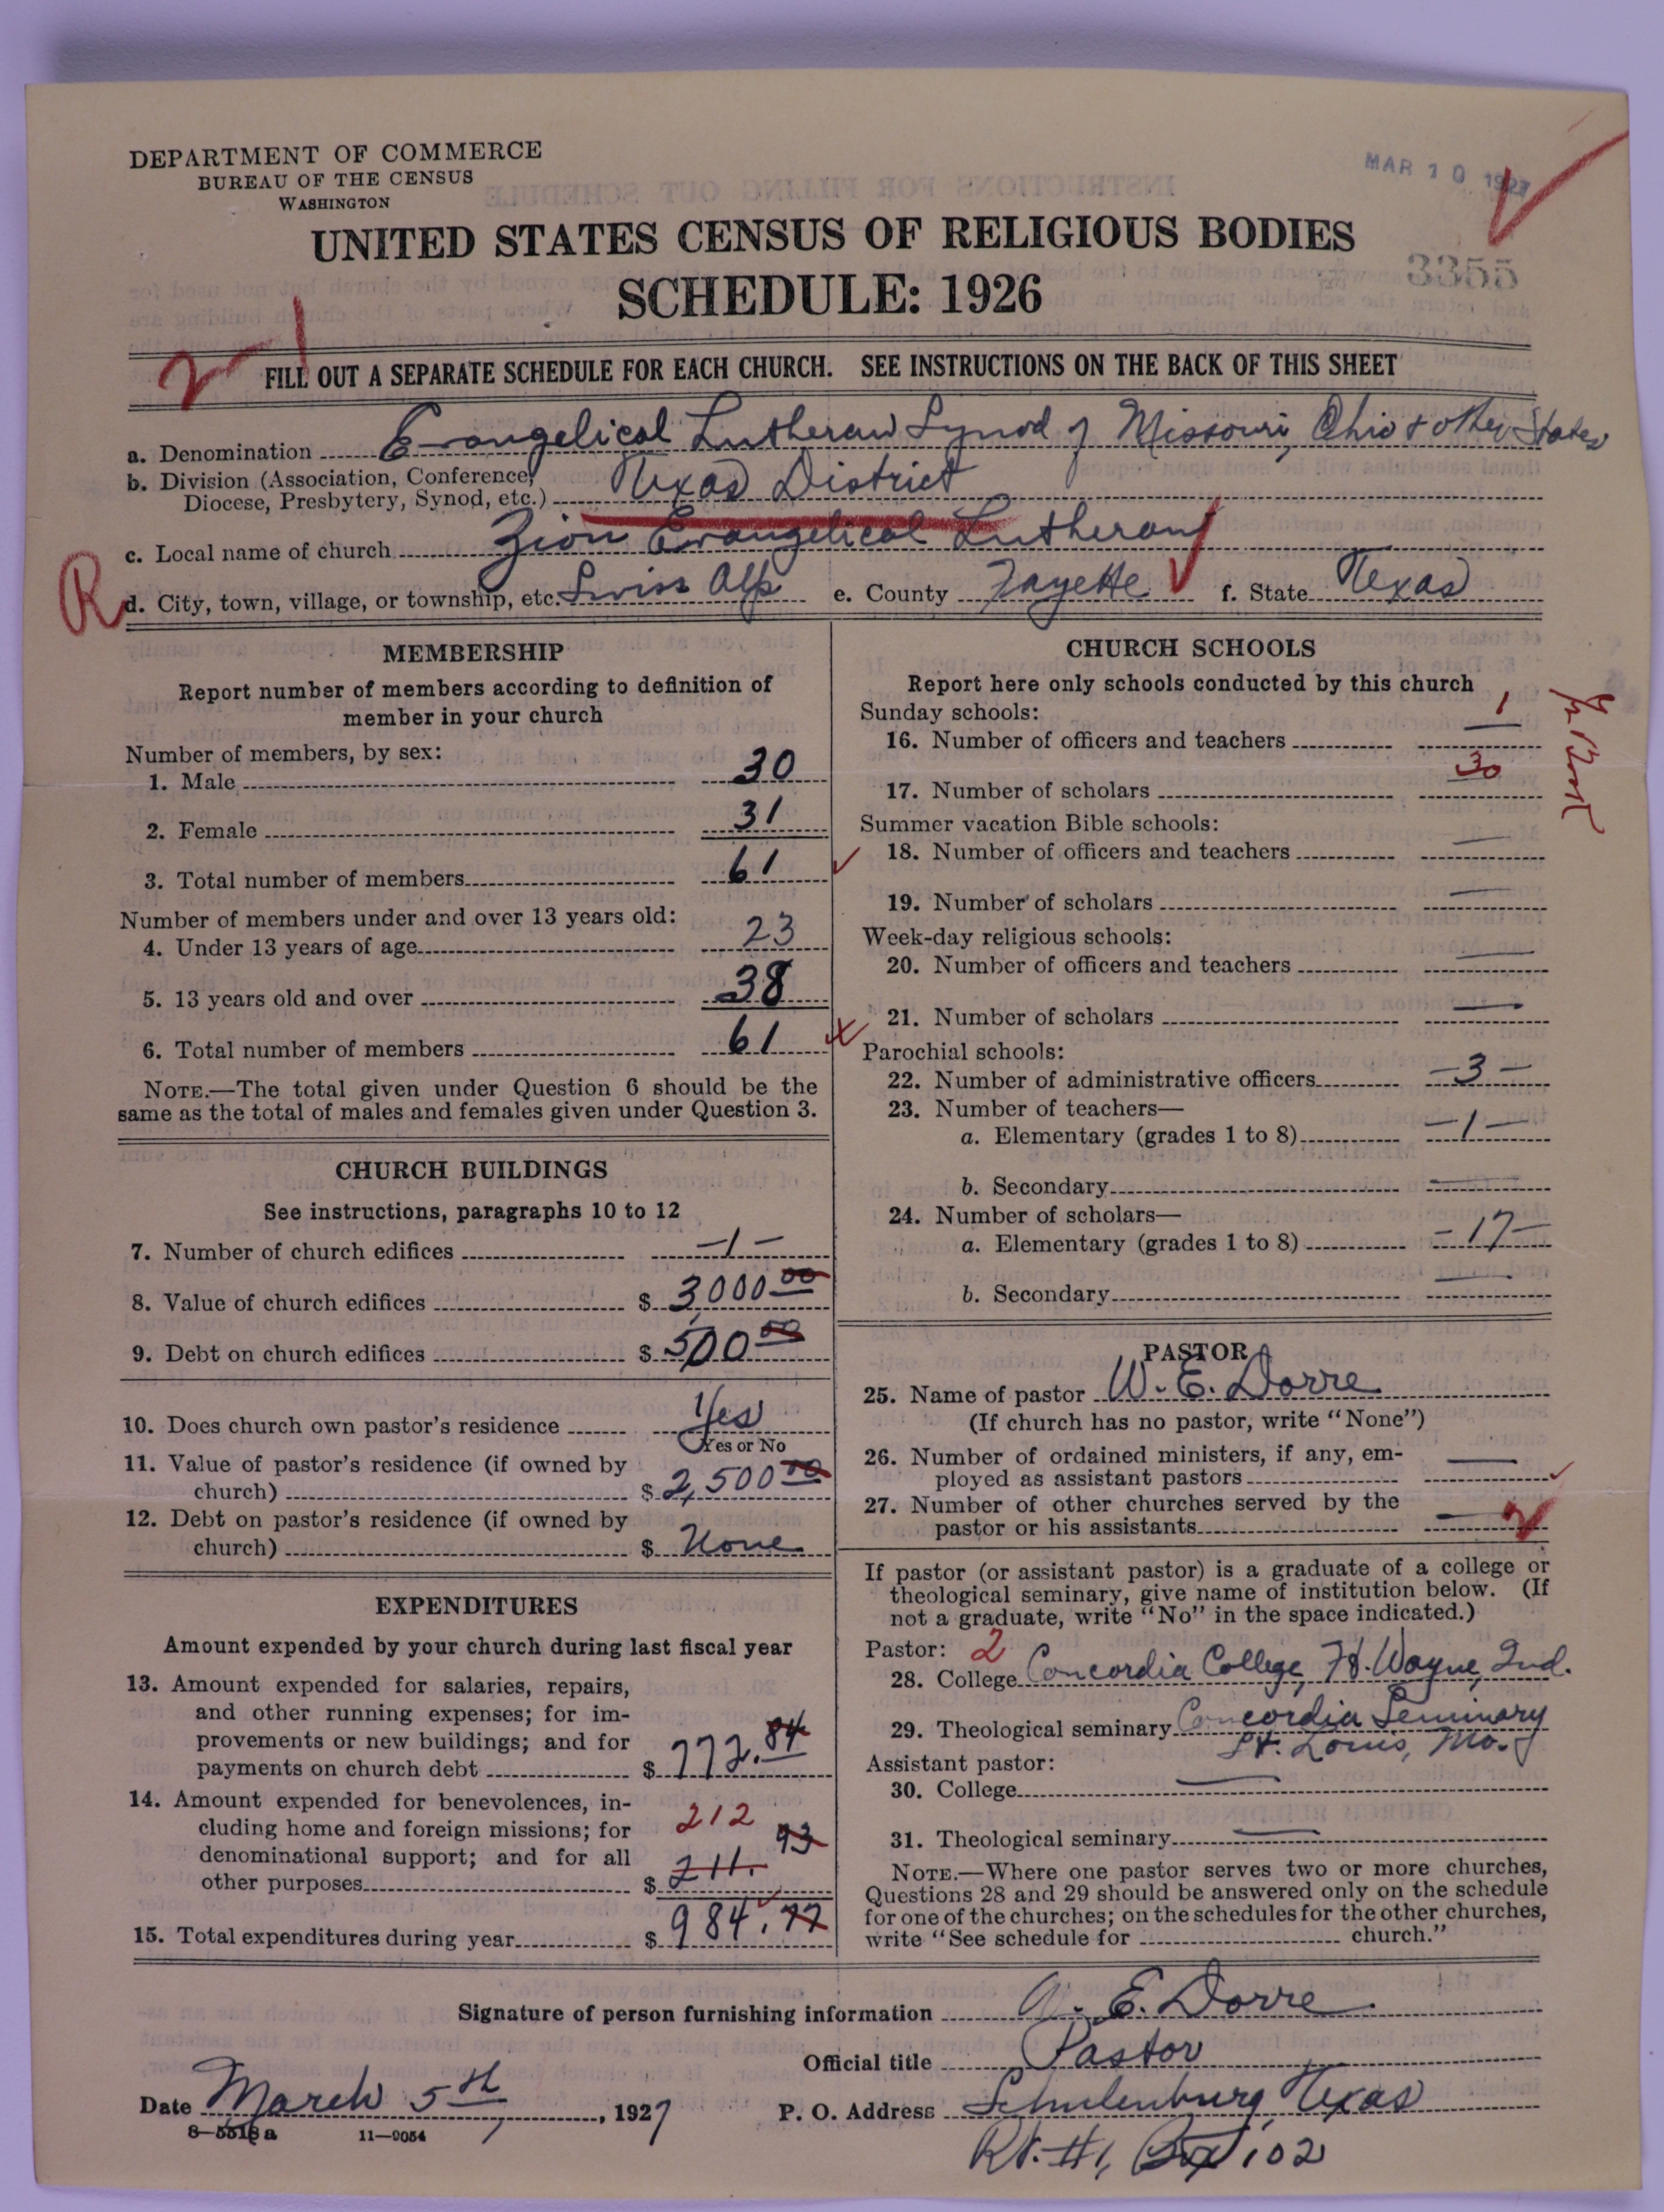 DEPARTMENT OF COMMERCE
BUREAU OF THE CENSUS
WASHINGTON
MAR 10 1927
UNITED STATES CENSUS OF RELIGIOUS BODIES
3355
SCHEDULE: 1926
FILL OUT A SEPARATE SCHEDULE FOR EACH CHURCH. SEE INSTRUCTIONS ON THE BACK OF THIS SHEET
a. Denomination Evangelical Lutheran Synod of Missouri, Ohio + other States
b. Division (Association, Conference,
Diocese, Presbytery, Synod, etc.) Texas District
c. Local name of church Zion Evangelical Lutheran
R
d. City, town, village, or township, etc. Swiss Alp e. County Fayette f. State Texas
MEMBERSHIP
Report number of members according to definition of
member in your church
Number of members, by sex:
1. Male 30
2. Female 31
3. Total number of members 61
Number of members under and over 13 years old:
4. Under 13 years of age 23
5. 13 years old and over 38
6. Total number of members 61
NOTE.—The total given under Question 6 should be the
same as the total of males and females given under Question 3.
CHURCH BUILDINGS
See instructions, paragraphs 10 to 12
7. Number of church edifices —1—
8. Value of church edifices $ 3,000 00
9. Debt on church edifices $ 500 00
10. Does church own pastor's residence Yes
Yes or No
11. Value of pastor's residence (if owned by
church) $ 2,500 00
12. Debt on pastor's residence (if owned by
church) $ None
EXPENDITURES
Amount expended by your church during last fiscal year
13. Amount expended for salaries, repairs,
and other running expenses; for im-
provements or new buildings; and for
payments on church debt $ 772.84
14. Amount expended for benevolences, in-
cluding home and foreign missions; for 212
denominational support; and for all
other purposes $ 211. 93
15. Total expenditures during year $ 984.77
CHURCH SCHOOLS
Report here only schools conducted by this church
Sunday schools:
16. Number of officers and teachers 1
17. Number of scholars 30
Summer vacation Bible schools:
18. Number of officers and teachers —
19. Number of scholars —
Week-day religious schools:
20. Number of officers and teachers —
21. Number of scholars —
Parochial schools:
22. Number of administrative officers —3—
23. Number of teachers—
a. Elementary (grades 1 to 8) —1—
b. Secondary —
24. Number of scholars—
a. Elementary (grades 1 to 8) —17—
b. Secondary —
PASTOR
25. Name of pastor W. E. Dorre
(If church has no pastor, write "None")
26. Number of ordained ministers, if any, em-
ployed as assistant pastors —
27. Number of other churches served by the
pastor or his assistants —
If pastor (or assistant pastor) is a graduate of a college or
theological seminary, give name of institution below. (If
not a graduate, write "No" in the space indicated.)
Pastor: 2
28. College Concordia College, Ft. Wayne, Ind.
29. Theological seminary Concordia Seminary
St. Louis, Mo.
Assistant pastor:
30. College —
31. Theological seminary —
NOTE.—Where one pastor serves two or more churches,
Questions 28 and 29 should be answered only on the schedule
for one of the churches; on the schedules for the other churches,
write "See schedule for church."
Signature of person furnishing information W. E. Dorre
Official title Pastor
Date March 5th, 1927
P. O. Address Schulenburg, Texas
8—5518 a 11—9054
Rt. #1, Box 102